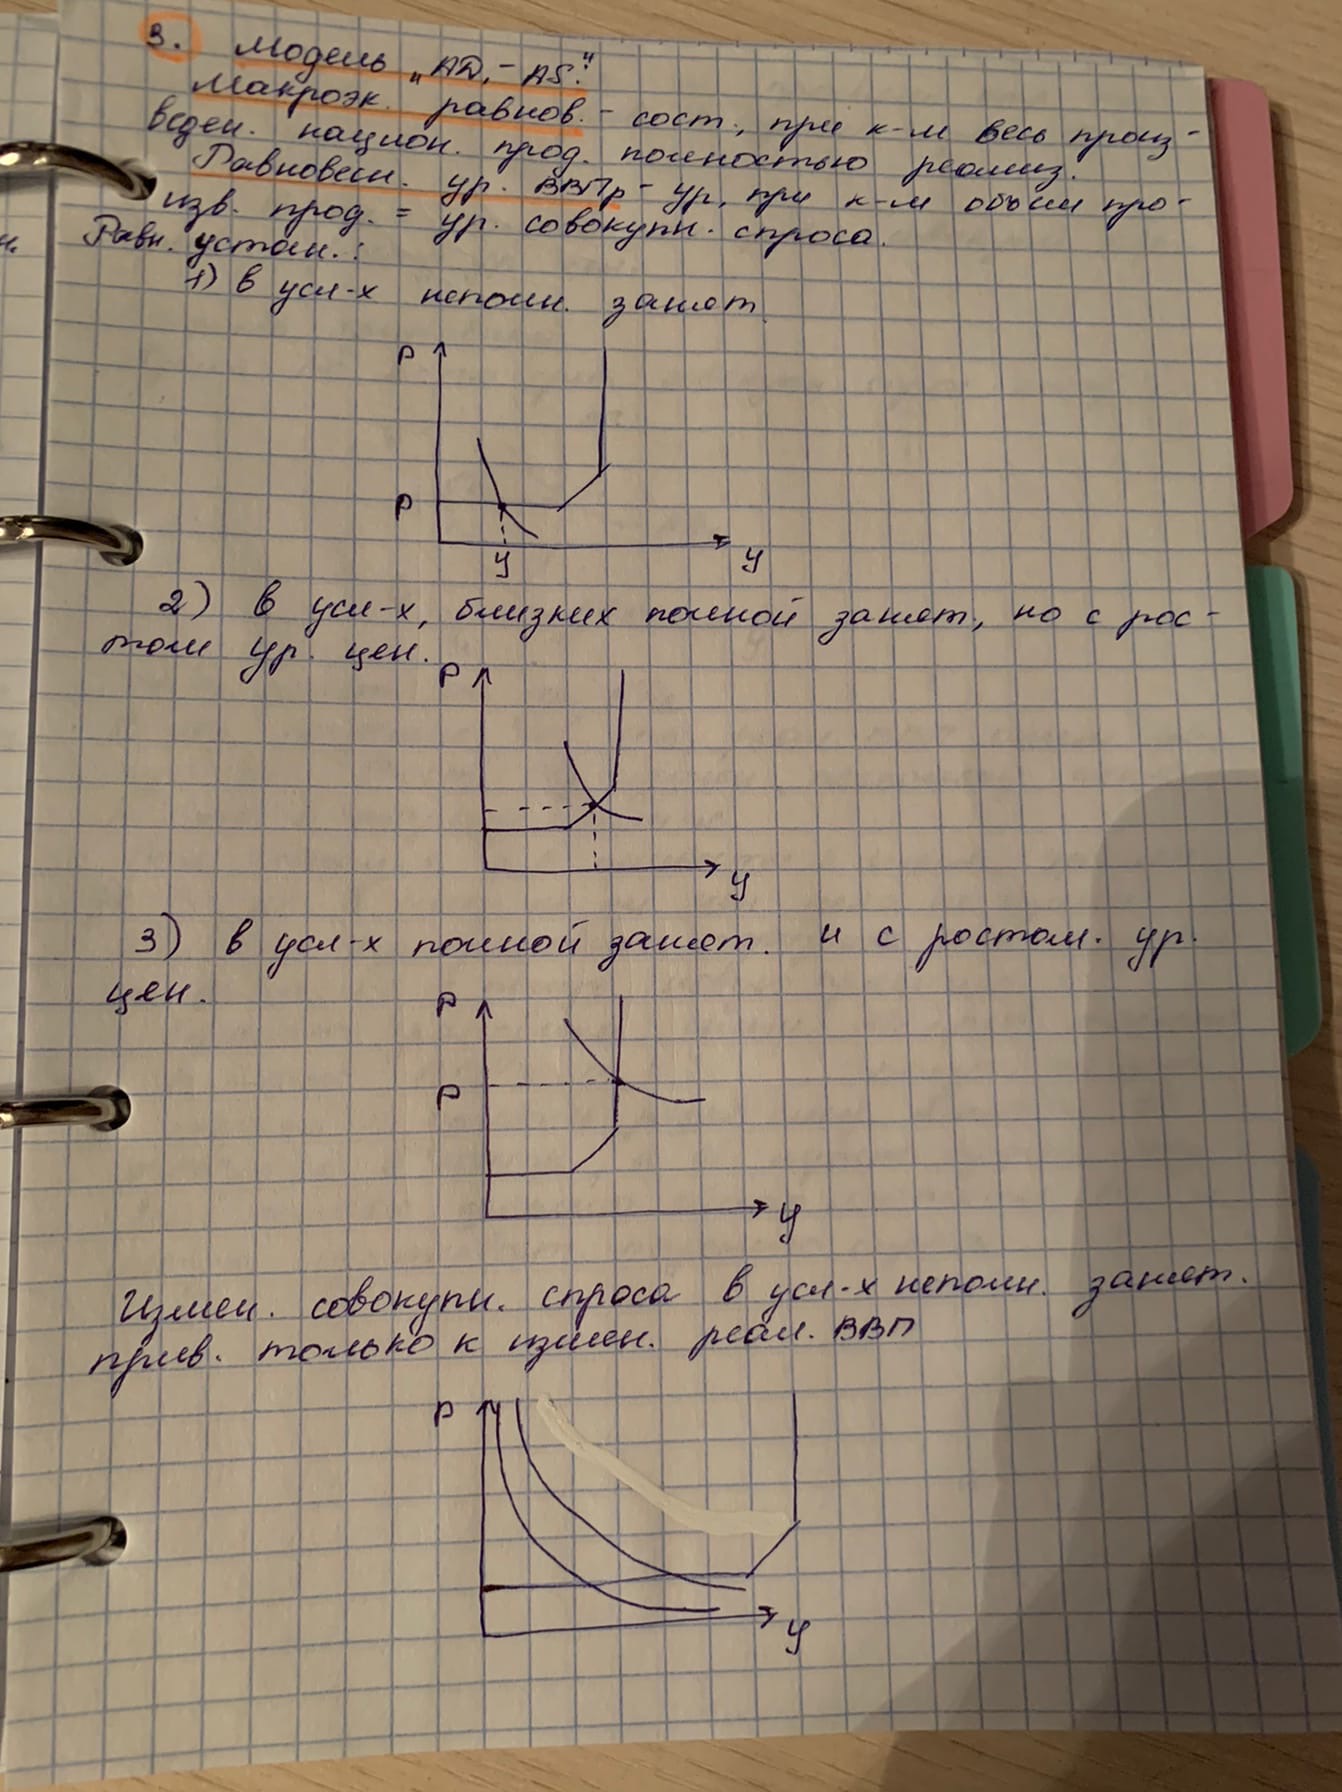 3. Модель „AD, - AS."
Макроэк. равнов. - сост., при к-м весь произ-
веден. национ. прод. полностью реализ.
Равновесн. ур. ВВПр - ур, при к-м объем про-
изв. прод. = ур. совокупн. спроса.
Равн. устан.:
1) в усл-х неполн. занят.
P
P
y
y
2) в усл-х, близких полной занят., но с рос-
том ур. цен.
P
y
3) в усл-х полной занят. и с ростом. ур.
цен.
P
P
y
Измен. совокупн. спроса в усл-х неполн. занят.
прив. только к измен. реал. ВВП
P
y